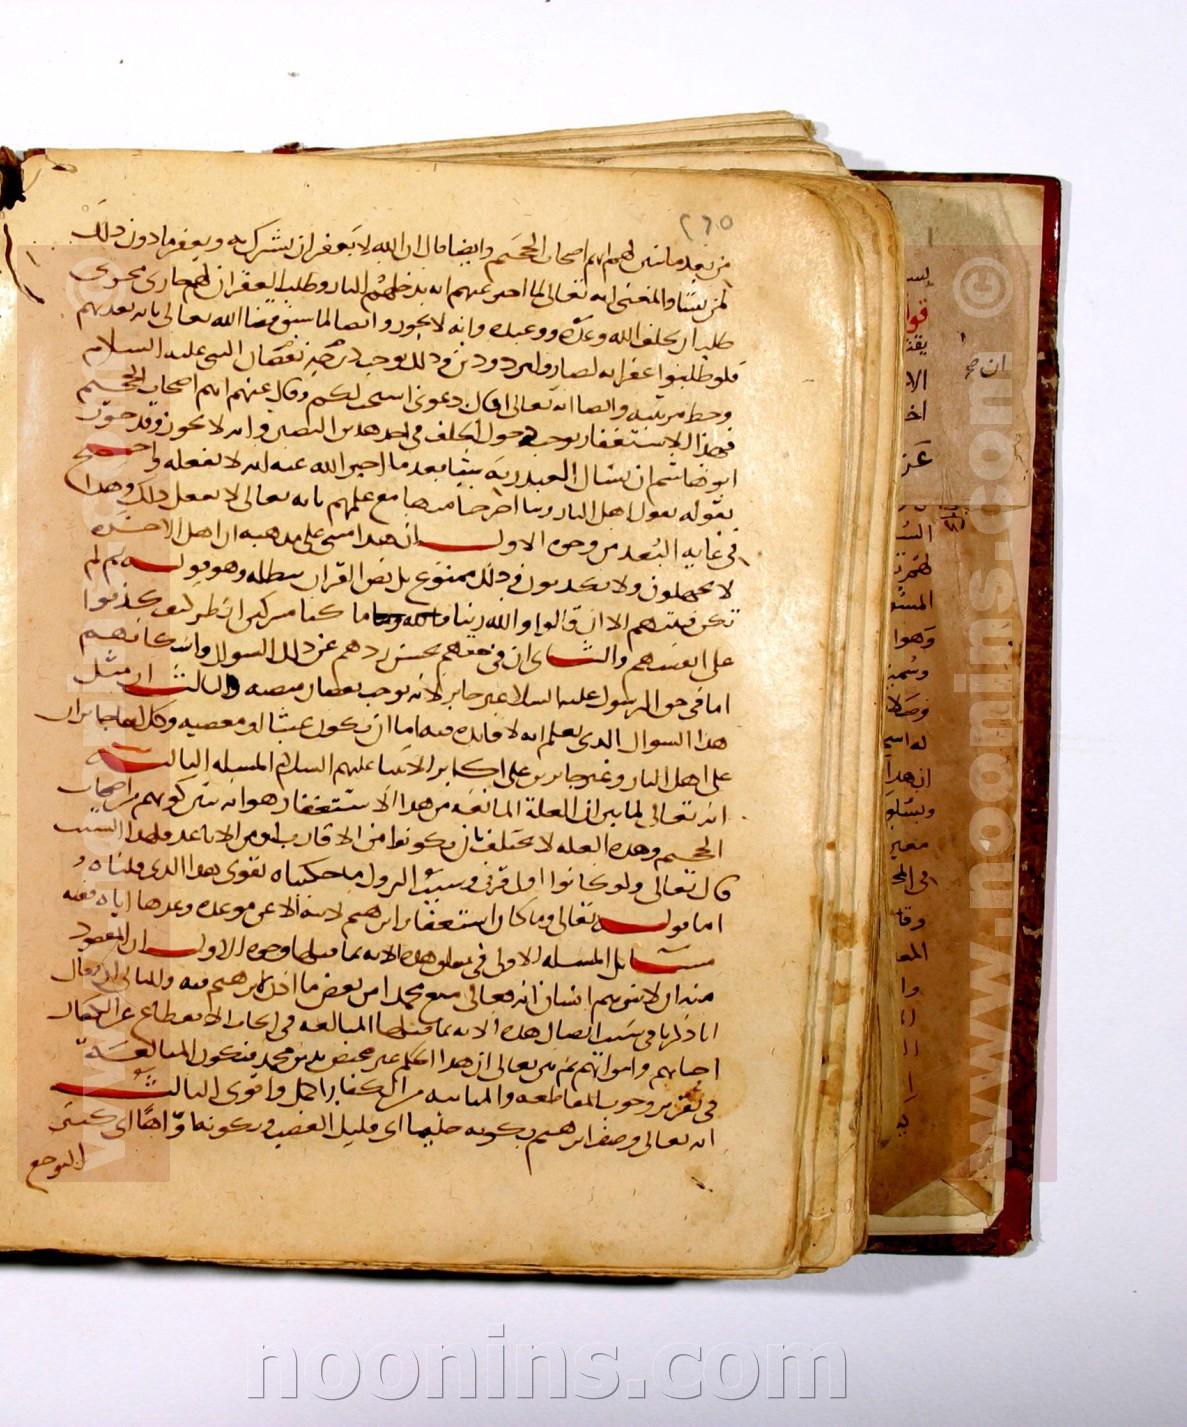 ٢٦٥
من بعد ما تبين لهم انهم اصحاب الجحيم وايضا قال ان الله لا يغفر ان يشرك به ويغفر ما دون ذلك
لمن يشا والمعنى انه تعالى لما اخبر عنهم انه يدخلهم النار وطلب الغفران لهم جارى مجرى
طلب ان يخلف الله وعده ووعيده وانه لا يجوز وايضا لما سبق قضا الله تعالى بانه يعذبهم
فلو طلبوا غفرانه لصاروا مردودين وذلك يوجب نقصان النبي عليه السلام
وحط مرتبته وايضا انه تعالى قال ادعوني استجب لكم وقال عنهم انهم اصحاب الجحيم
فهذا الاستغفار يوجب دخول الخلف في احد هذين النصين وانه لا يجوز وقد جوز
ابو هاشم ان يسال العبد ربه شيا بعد ما اخبر الله عنه انه لا يفعله واحتج
بقوله بقول اهل النار ربنا اخرجنا منها مع علمهم بانه تعالى لا يفعل ذلك وهذا
في غايه البعد من وجوه الاول ان هذا مبني على مذهبه ان اهل الاخره
لا يجهلون ولا يكذبون وذلك ممنوع بل نص القران يبطله وهو قوله ثم لم
تكن فتنتهم الا ان قالوا والله ربنا ما كنا مشركين انظر كيف كذبوا
على انفسهم والثاني ان في حقهم يحسن ردهم عن ذلك السوال واسكاتهم
اما في حق الرسول عليه السلام غير جايز لانه يوجب نقصان منصبه والثالث ان مثل
هذا السوال الذي يعلم انه لا فايده فيه اما ان يكون عبثا او معصيه وكلاهما جايزان
على اهل النار وغير جايزين على اكابر الانبيا عليهم السلام المسله الثالثه
انه تعالى لما بين ان العلة المانعه من هذا الاستغفار هو انه تبين كونهم من اصحاب
الجحيم وهذه العله لا تختلف بان يكونوا من الاقارب او من الاباعد فلهذا السبب
قال تعالى ولو كانوا اولي قربى وسبب النزول ما حكيناه يقوى هذا الذي قلناه
اما قوله تعالى وما كان استغفار ابرهيم لابيه الا عن موعده وعدها اياه ففيه
مسايل المسله الاولى في تعلق هذه الايه بما قبلها وجوه الاول ان المقصود
منه ان لا يتوهم انسان انه تعالى منع محمدا من بعض ما اذن لابرهيم فيه والثاني ان يقال
انا ذكرنا في سبب اتصال هذه الايه بما قبلها المبالغه في ايجاب الانقطاع عن الكفار
احيائهم وامواتهم ثم بين تعالى ان هذا الحكم غير مختص بدين محمد فتكون المبالغه
في تقرير وجوب المقاطعه والمباينه من الكفار اكمل واقوى الثالث
انه تعالى وصف ابرهيم بكونه حليما اى قليل الغضب وبكونه اواها اى كثير
التوجع
ان صح
www.noonins.com ©
noonins.com